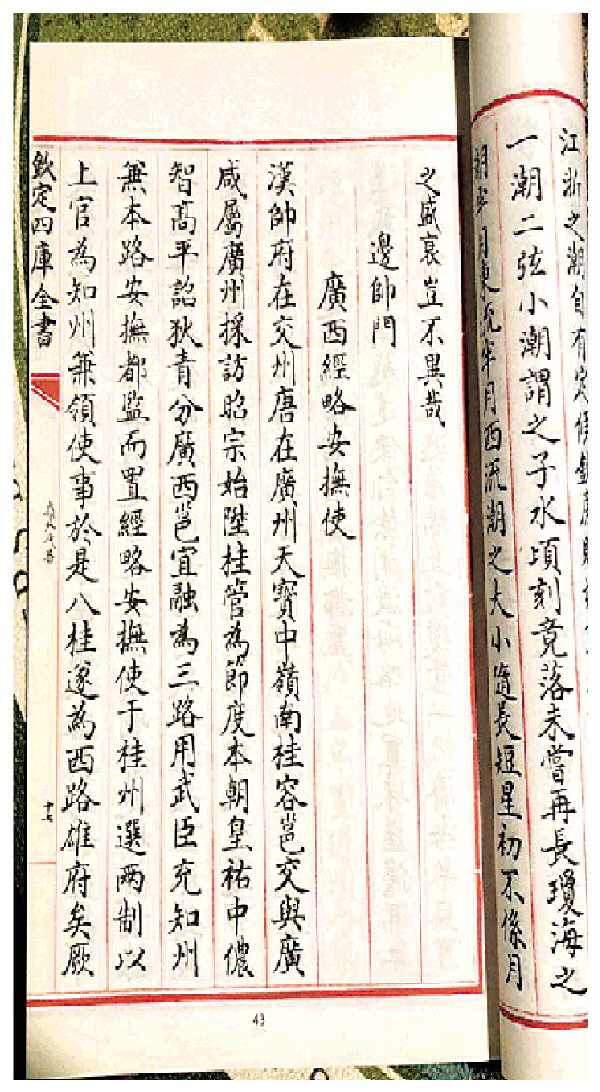 江浙之潮自有定候欽廉則
一潮二弦小潮謂之子水頃刻竟落未嘗再長瓊海之
潮半月東流半月西流潮之大小隨長短星初不係月
之盛衰豈不異哉
邊帥門
廣西經略安撫使
漢帥府在交州唐在廣州天寳中嶺南桂容邕交與廣
咸屬廣州採訪昭宗始陞桂管為節度本朝皇祐中儂
智髙平詔狄青分廣西邕宜融為三路用武臣充知州
兼本路安撫都監而置經略安撫使于桂州選兩制以
上官為知州兼領使事於是八桂遂為西路雄府矣厥
欽定四庫全書
十七
43